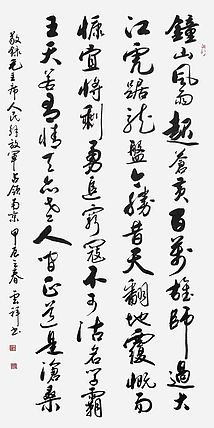 鐘山風雨起蒼黃百萬雄師過大
江虎踞龍盤今勝昔天翻地覆慨而
慷宜將剩勇追窮寇不可沽名學霸
王天若有情天亦老人間正道是滄桑
敬錄毛主席人民解放軍占領南京 甲辰之春 雲祥書